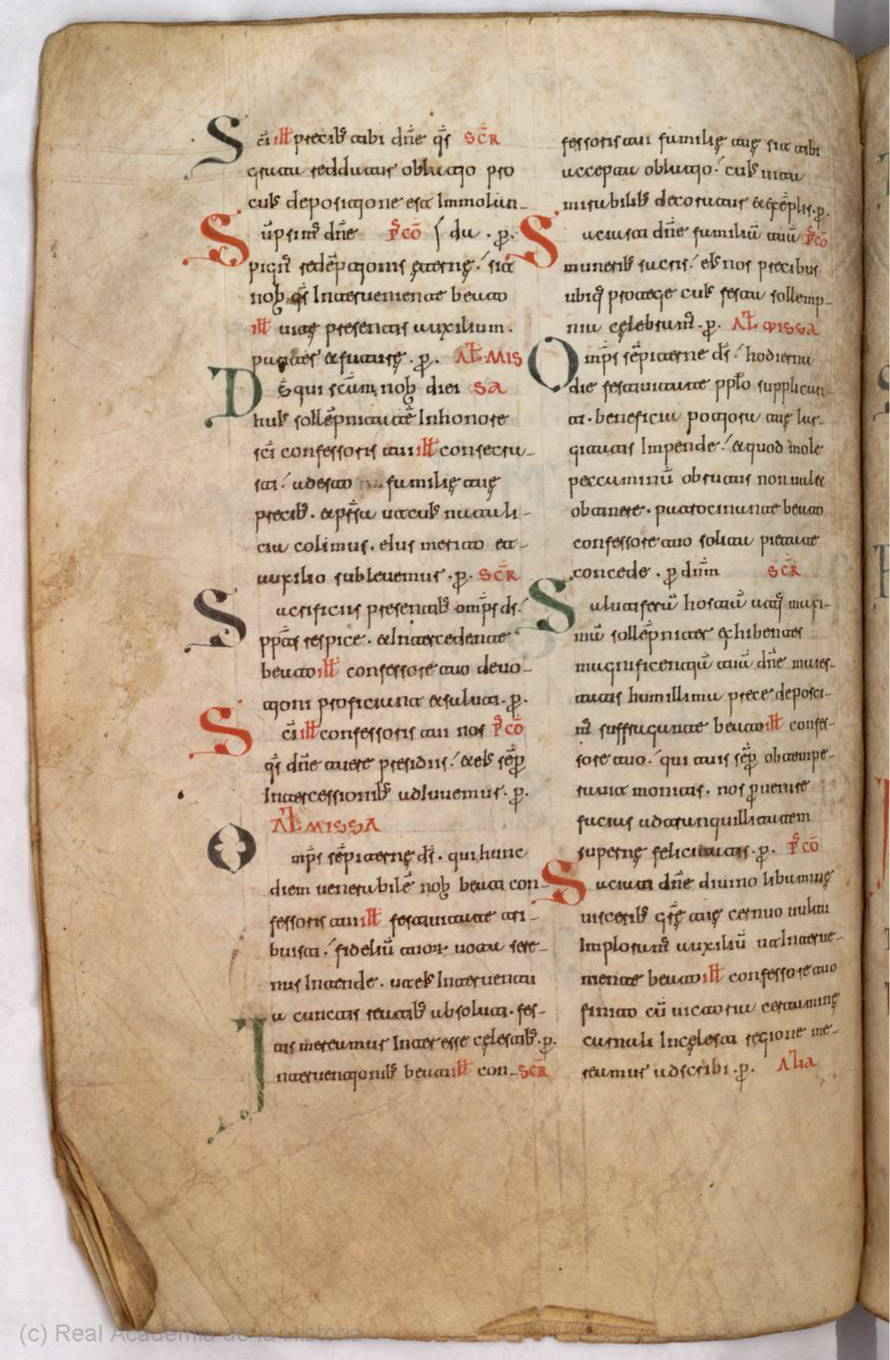 Sc̄i ill̄ precib; tibi dn̄e qs̄ SCR̄
grata reddatur oblatio pro
cuius depositione est Immolan-
Sūpsim; dn̄e P̄CŌ / da . p̄.
pign̄ redēptionis ęternę / sit
nob̄ qs̄ Interueniente beato
ill̄ uitę presentis auxilium .
pariter & futurę . p̄. AL̄ MIS
SA
Dēs qui sc̄am nob̄ diei
huius sollēpnitatē In honore
sc̄i confessoris tui ill̄ consecra-
sti / adesto familię tuę
precib; . & pr̄sta ut cuius natali-
cia colimus . eius merito et-
auxilio subleuemur . p̄. SCR̄
Sacrificiis presentib; omp̄s ds̄ /
pp̄tȩ respice . & Intercedente
beato ill̄ confessore tuo deuo-
tioni proficiant & saluti . p̄.
Sc̄i ill̄ confessoris tui nos P̄CŌ
qs̄ dn̄e tuere presidiis / & eius sēp̄
Intercessionib; adiuuemur . p̄.
AL̄ MISSA
Omp̄s sēpiternę ds̄ . qui hunc
diem uenerabilē nob̄ beati con-
fessoris tui ill̄ festiuitate tri-
buisti / fideliū tuor̄ uota sere-
nus Intende . ut eius Interuentu
a cunctis reatib; absoluti . fes-
tis mereamur Interesse cęlestib; . p̄.
Interuentionib; beati ill̄ con- SCR̄
fessoris tui familię tuę sit tibi
accepta oblatio / cuius uita
mirabilib; decoratur & exēplis . p̄.
Saciasti dn̄e familiā tuā P̄CŌ
munerib; sacris / eius nos precibus
ubiq; protege cuius festa sollemp-
nia cęlebram; . p̄. AL̄ MISSA
Omp̄s sēpiterne ds̄ / hodierna
die festiuitate pp̄lo supplican-
ti . beneficia potiora tuę lar-
gitatis Impende / & quod mole
peccaminū obruatis non ualet
obtinere . patrocinante beato
confessore tuo solita pietate
concede . p̄ dn̄m SCR̄
Salutiferā hostiā utiq; maxi-
mā sollēpniter exhibentes
magnificentiā tuā dn̄e maies-
tatis humillima prece deposci-
m; suffragante beato ill̄ confes-
sore tuo / qui tuis sēp̄ obtempe-
rauit monitis . nos peruenire
facias ad tranquillitatem
supernę felicitatis . p̄. P̄CŌ
Saciati dn̄e diuino libamine
uiscerib; grēg tuę cernuo uultu
Imploram; auxiliū ut Interue-
niente beato ill̄ confessore tuo
finito cū uictoria certamine
carnali In cęlesti regione me-
reamur adscribi . p̄. ALIA
(c) Real Academia de la Historia